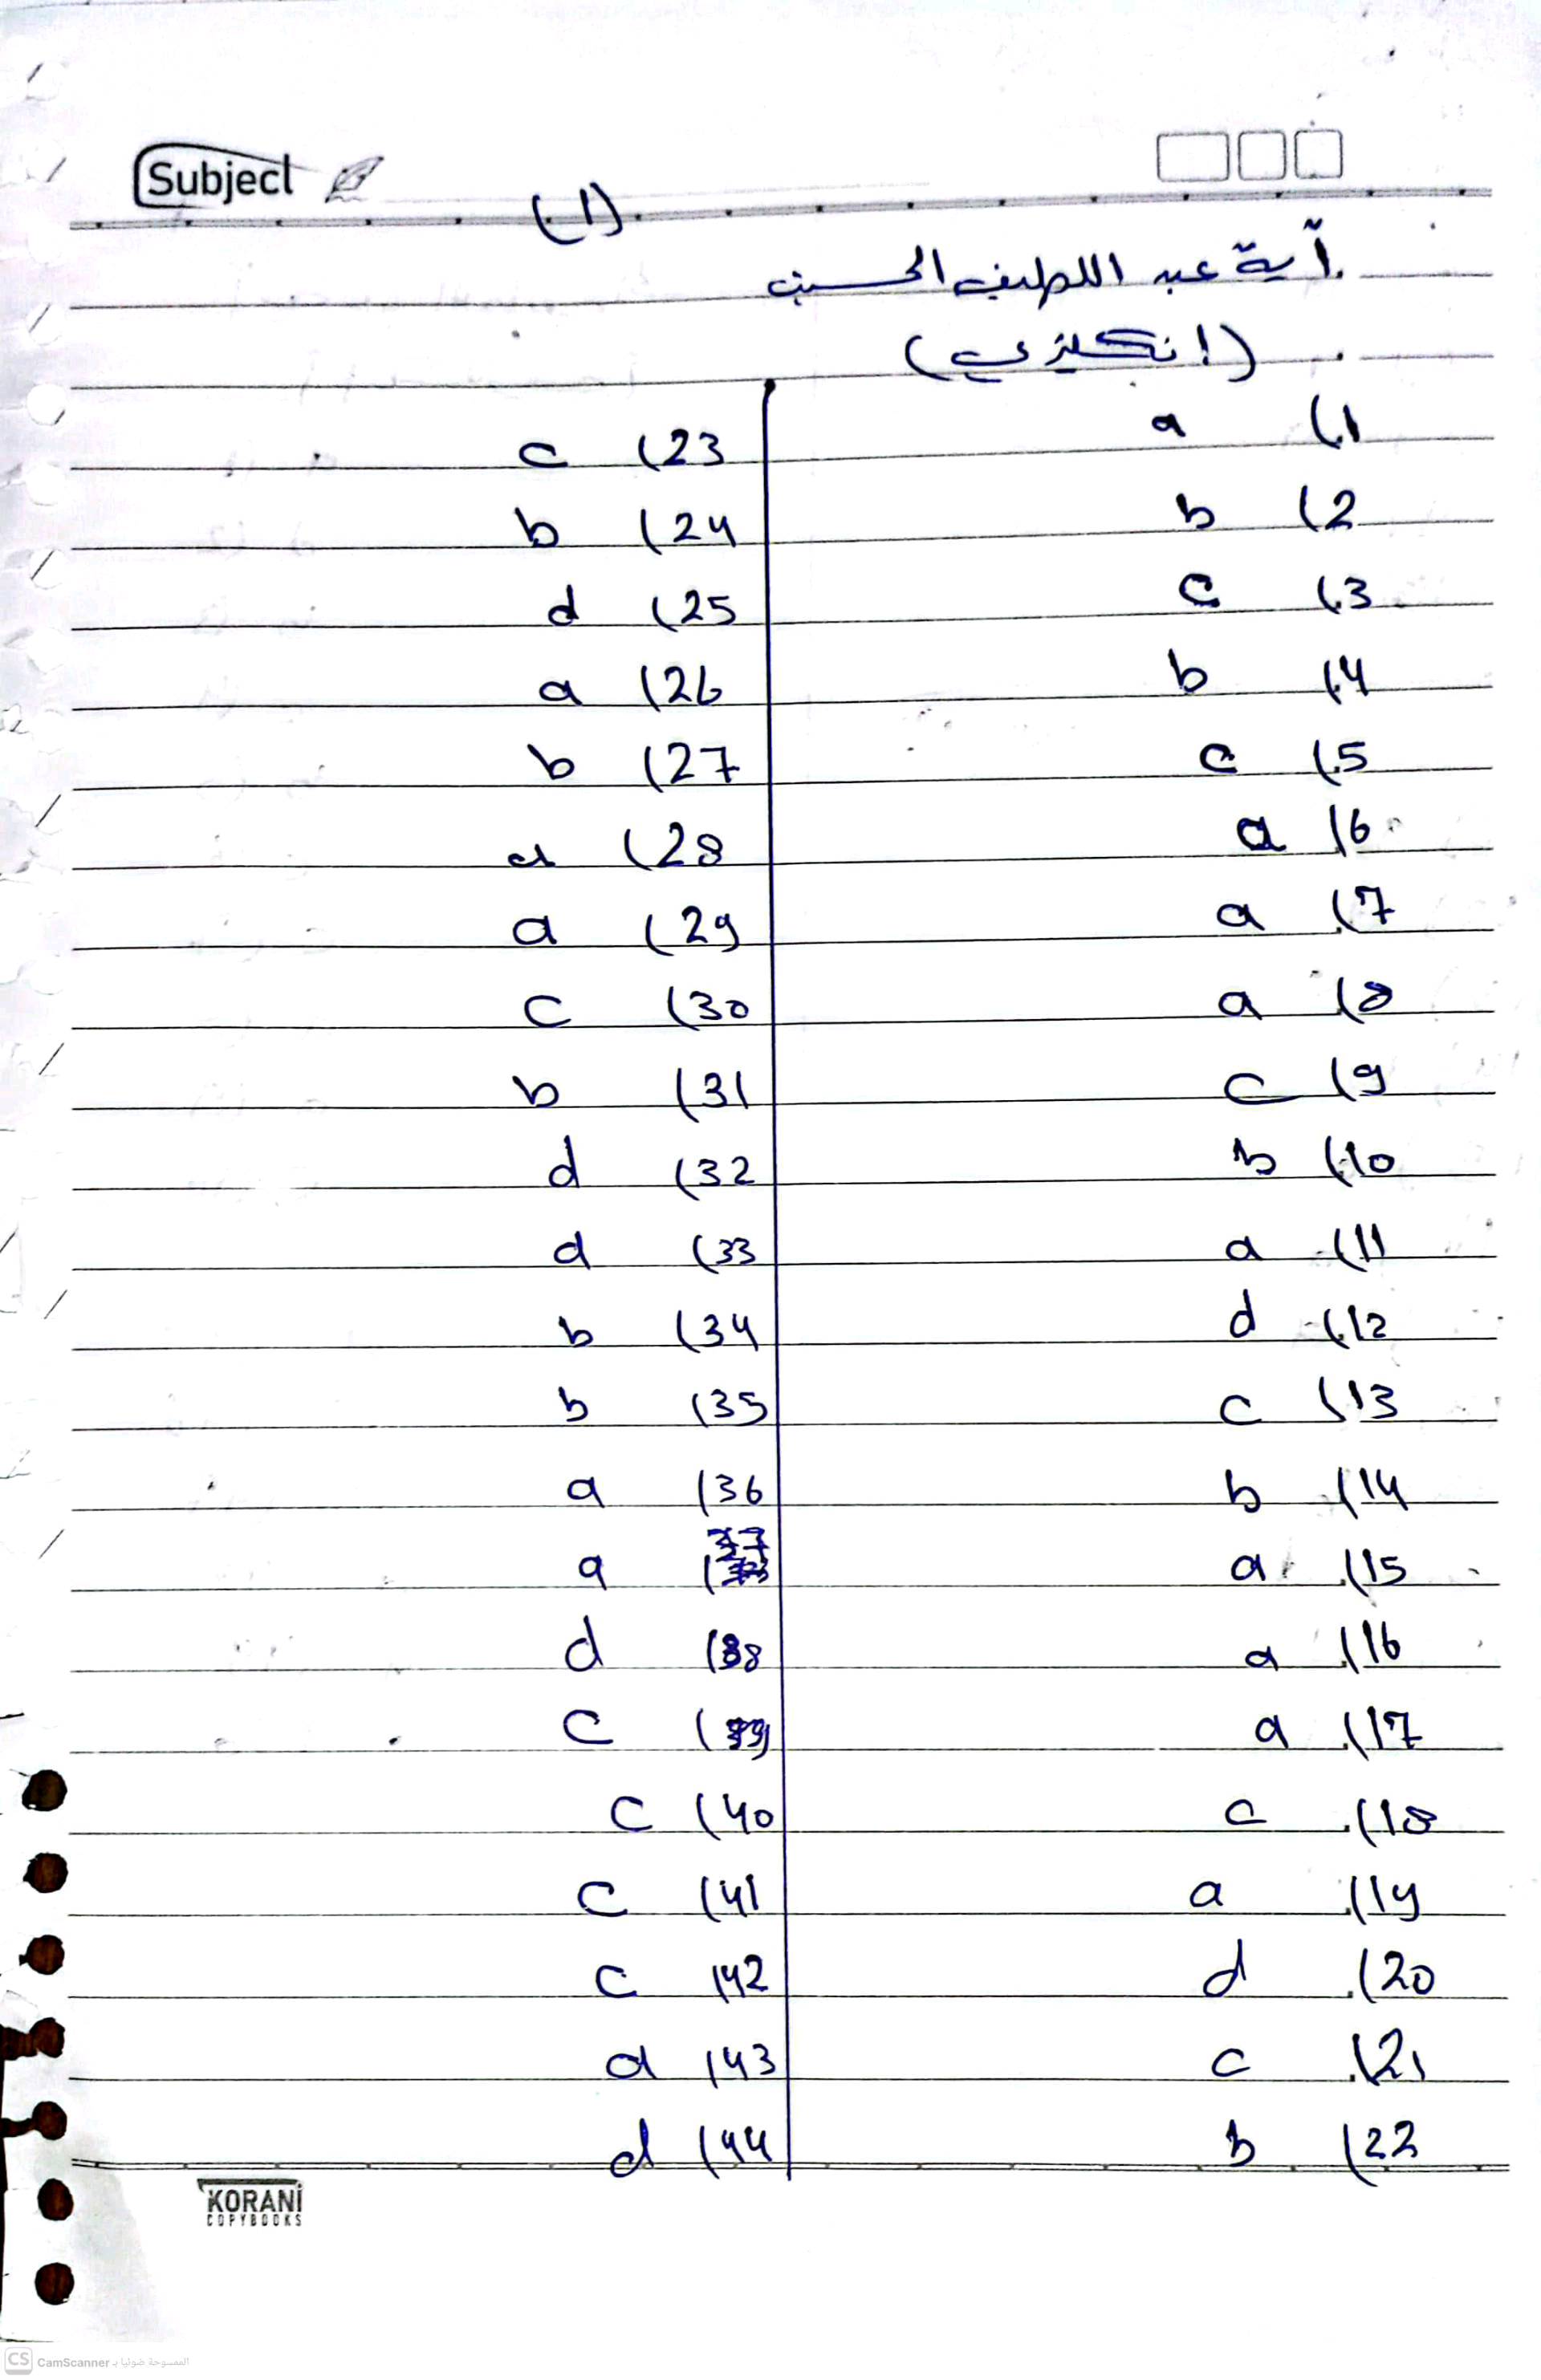 Subject
(1)
آية عبد اللطيف الحسين
(إنكليزي)
1) a
2) b
3) c
4) b
5) c
6) a
7) a
8) a
9) c
10) b
11) a
12) d
13) c
14) b
15) a
16) a
17) a
18) c
19) a
20) d
21) c
22) b
23) c
24) b
25) d
26) a
27) b
28)
29) a
30) c
31) b
32) d
33) d
34) b
35) b
36) a
37) a
38) d
39) c
40) c
41) c
42) c
43) d
44) d
KORANI
COPYBOOKS
CS CamScanner الممسوحة ضوئيا بـ